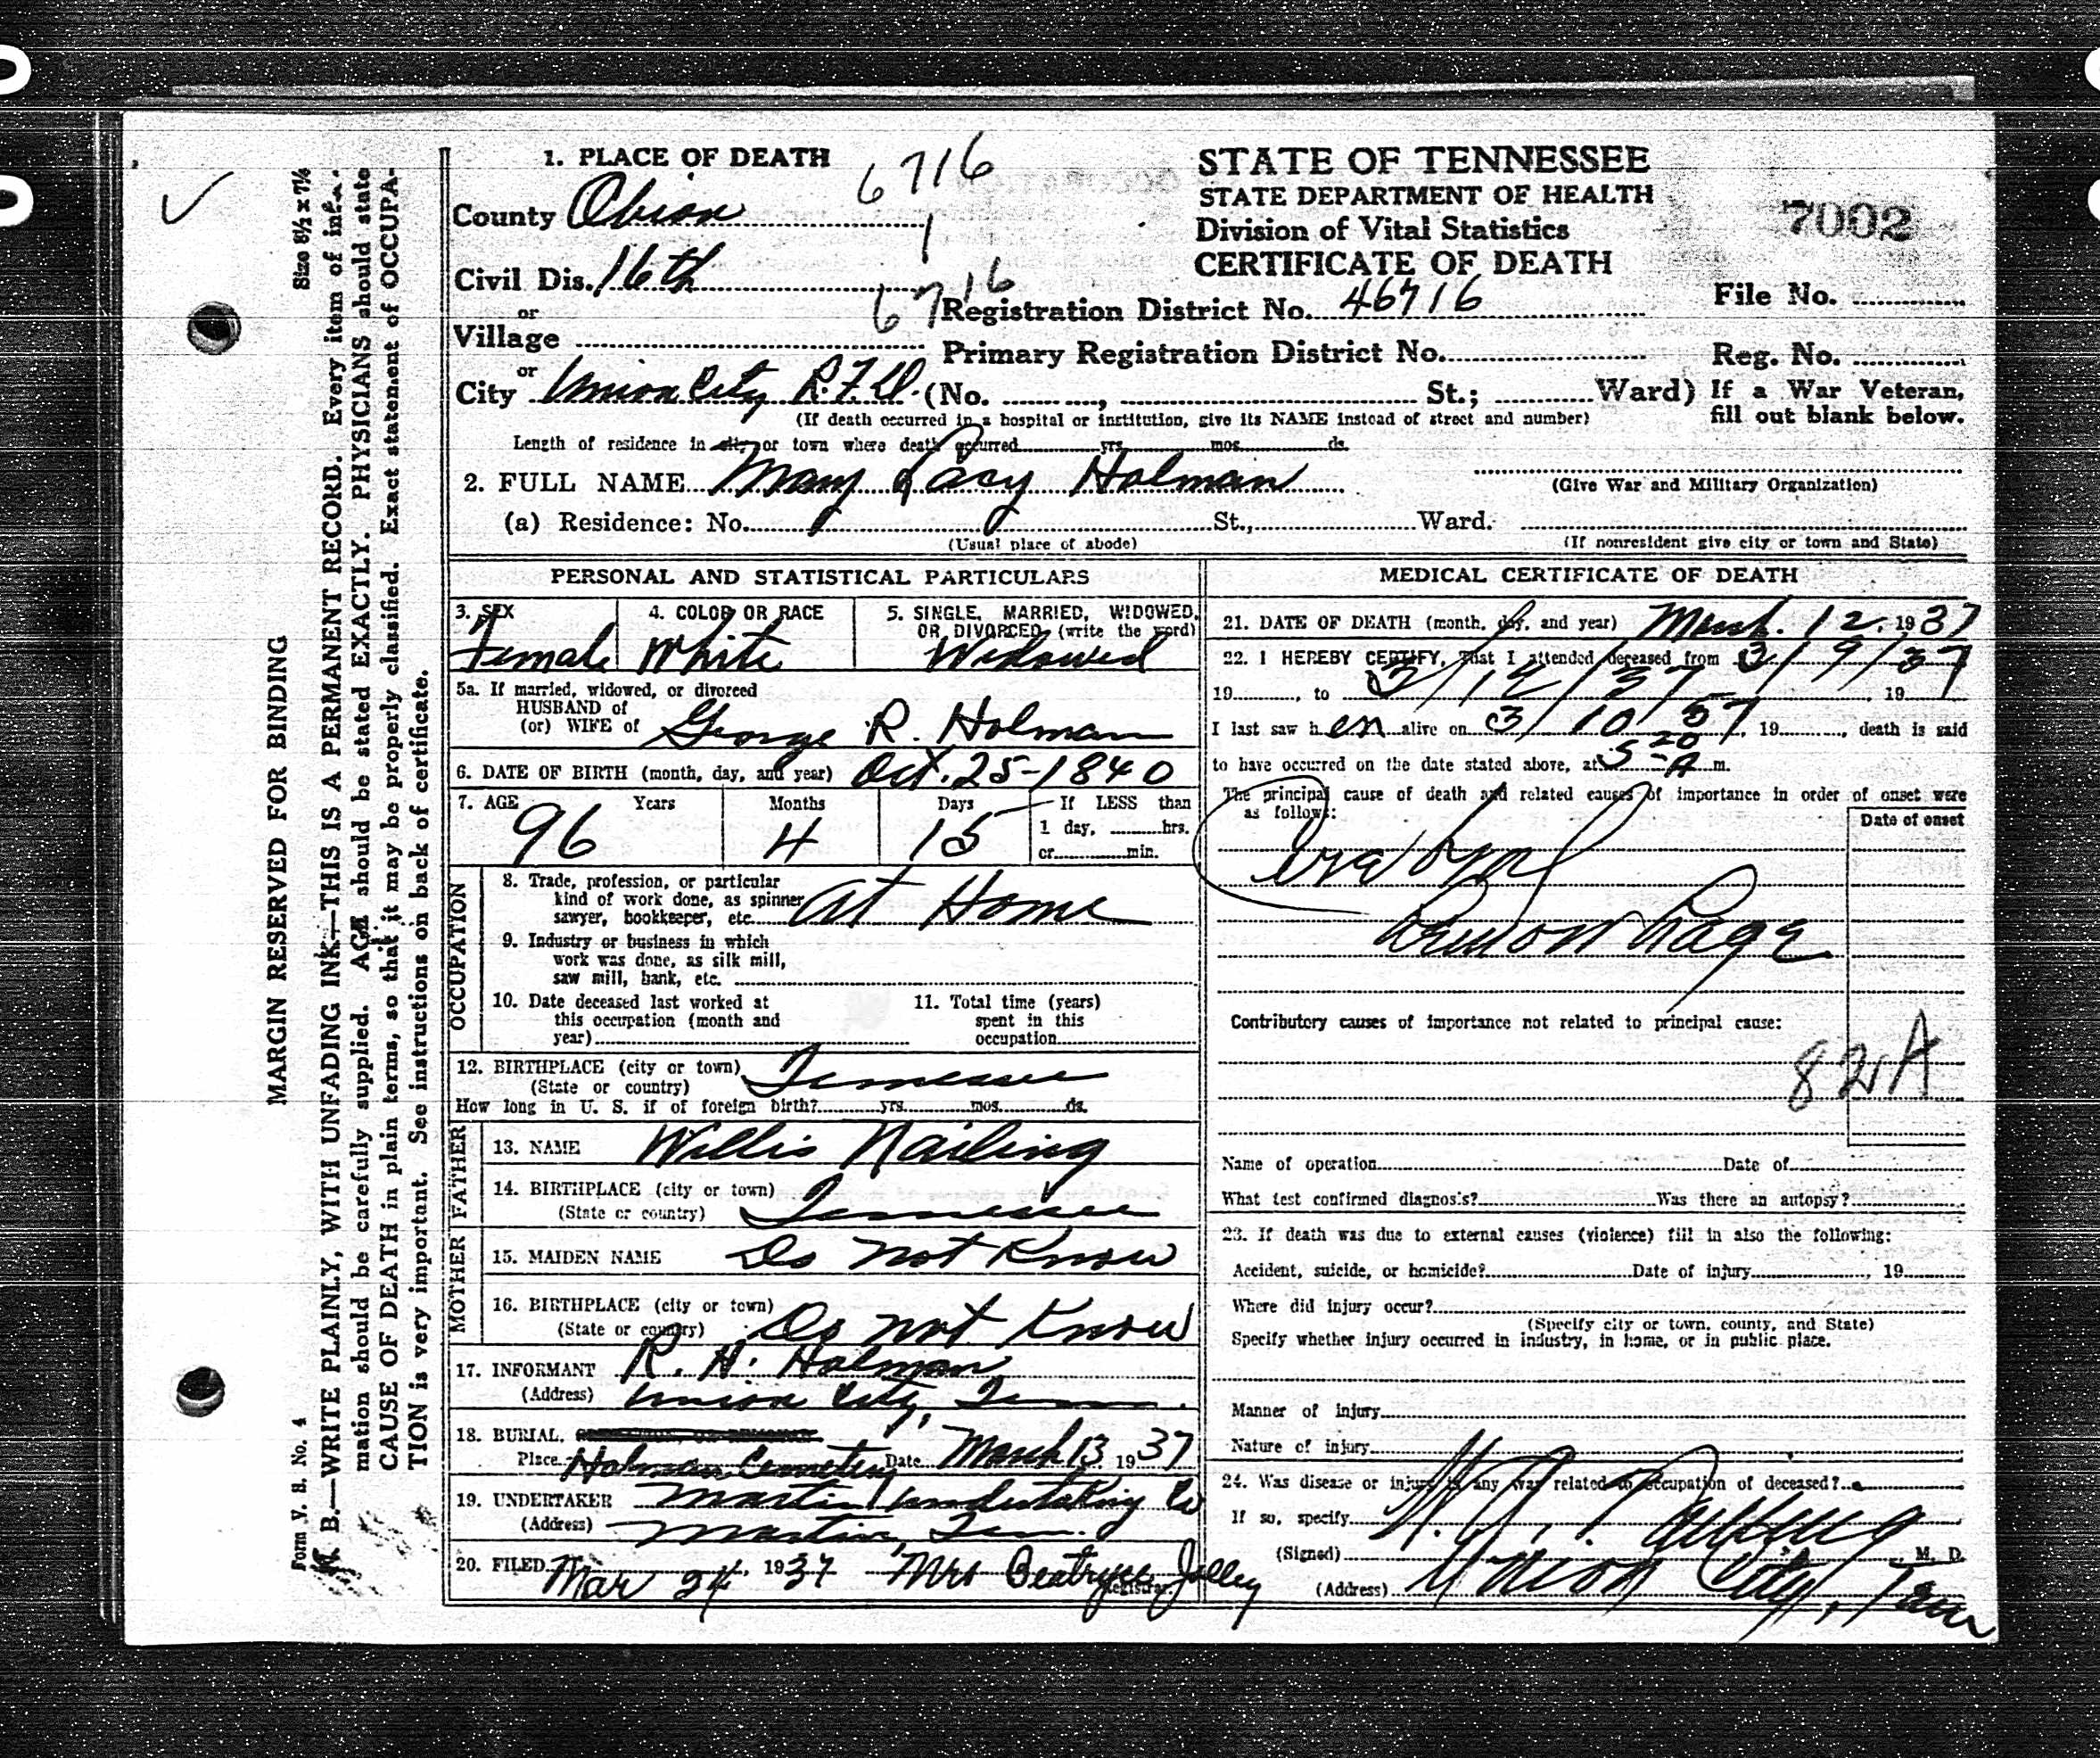 1. PLACE OF DEATH
6716
County Obion
1
Civil Dis. 16th
6716
or
Village
or
City Union City R.F.D. (No. St.; Ward)
(If death occurred in a hospital or institution, give its NAME instead of street and number)
Length of residence in city or town where death occurred yrs. mos. ds.
STATE OF TENNESSEE
STATE DEPARTMENT OF HEALTH
Division of Vital Statistics
CERTIFICATE OF DEATH
7002
Registration District No. 46716
File No.
Primary Registration District No.
Reg. No.
If a War Veteran,
fill out blank below.
2. FULL NAME Mary Lacy Holman
(Give War and Military Organization)
(a) Residence: No. St., Ward.
(Usual place of abode)
(If nonresident give city or town and State)
PERSONAL AND STATISTICAL PARTICULARS
3. SEX
Female
4. COLOR OR RACE
White
5. SINGLE, MARRIED, WIDOWED,
OR DIVORCED (write the word)
Widowed
5a. If married, widowed, or divorced
HUSBAND of
(or) WIFE of George R. Holman
6. DATE OF BIRTH (month, day, and year) Oct. 25-1840
7. AGE Years Months Days If LESS than
96 4 15 1 day, hrs.
or min.
OCCUPATION
8. Trade, profession, or particular
kind of work done, as spinner
sawyer, bookkeeper, etc. At Home
9. Industry or business in which
work was done, as silk mill,
saw mill, bank, etc.
10. Date deceased last worked at
this occupation (month and
year)
11. Total time (years)
spent in this
occupation
12. BIRTHPLACE (city or town) Tennessee
(State or country)
How long in U. S. if of foreign birth? yrs. mos. ds.
FATHER
13. NAME Willis Nailing
14. BIRTHPLACE (city or town) Tennessee
(State or country)
MOTHER
15. MAIDEN NAME Do not Know
16. BIRTHPLACE (city or town) Do not Know
(State or country)
17. INFORMANT R. H. Holman
(Address) Union City, Tenn.
18. BURIAL,
Place Holman Cemetery Date March 13 1937
19. UNDERTAKER Martin Undertaking Co
(Address) Martin, Tenn.
20. FILED Mar 24, 1937 Mrs Beatryce Jolley
Registrar.
MEDICAL CERTIFICATE OF DEATH
21. DATE OF DEATH (month, day, and year) March. 12, 1937
22. I HEREBY CERTIFY, That I attended deceased from 3/9/37
19 , to 3/12/37 , 19
I last saw h er alive on 3/10/37, 19 , death is said
to have occurred on the date stated above, at 5 20 A m.
The principal cause of death and related causes of importance in order of onset were
as follows:
Date of onset
Cerebral
Hemorrhage
Contributory causes of importance not related to principal cause:
82A
Name of operation Date of
What test confirmed diagnosis? Was there an autopsy?
23. If death was due to external causes (violence) fill in also the following:
Accident, suicide, or homicide? Date of injury , 19
Where did injury occur?
(Specify city or town, county, and State)
Specify whether injury occurred in industry, in home, or in public place.
Manner of injury
Nature of injury
24. Was disease or injury in any way related to occupation of deceased?
If so, specify
(Signed) M. D.
(Address) Union City, Tenn
MARGIN RESERVED FOR BINDING
Size 8½ x 7¼
N. B.—WRITE PLAINLY, WITH UNFADING INK—THIS IS A PERMANENT RECORD. Every item of infor-
mation should be carefully supplied. AGE should be stated EXACTLY. PHYSICIANS should state
CAUSE OF DEATH in plain terms, so that it may be properly classified. Exact statement of OCCUPA-
TION is very important. See instructions on back of certificate.
Form V. S. No. 4